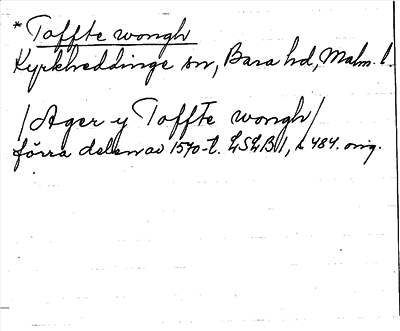 * Toffte wongh
Kyrkheddinge sn, Bara hd, Malm. l.
/Ager y Toffte wongh/
förra delen av 1570-t. LSLB 1, s 484. orig.